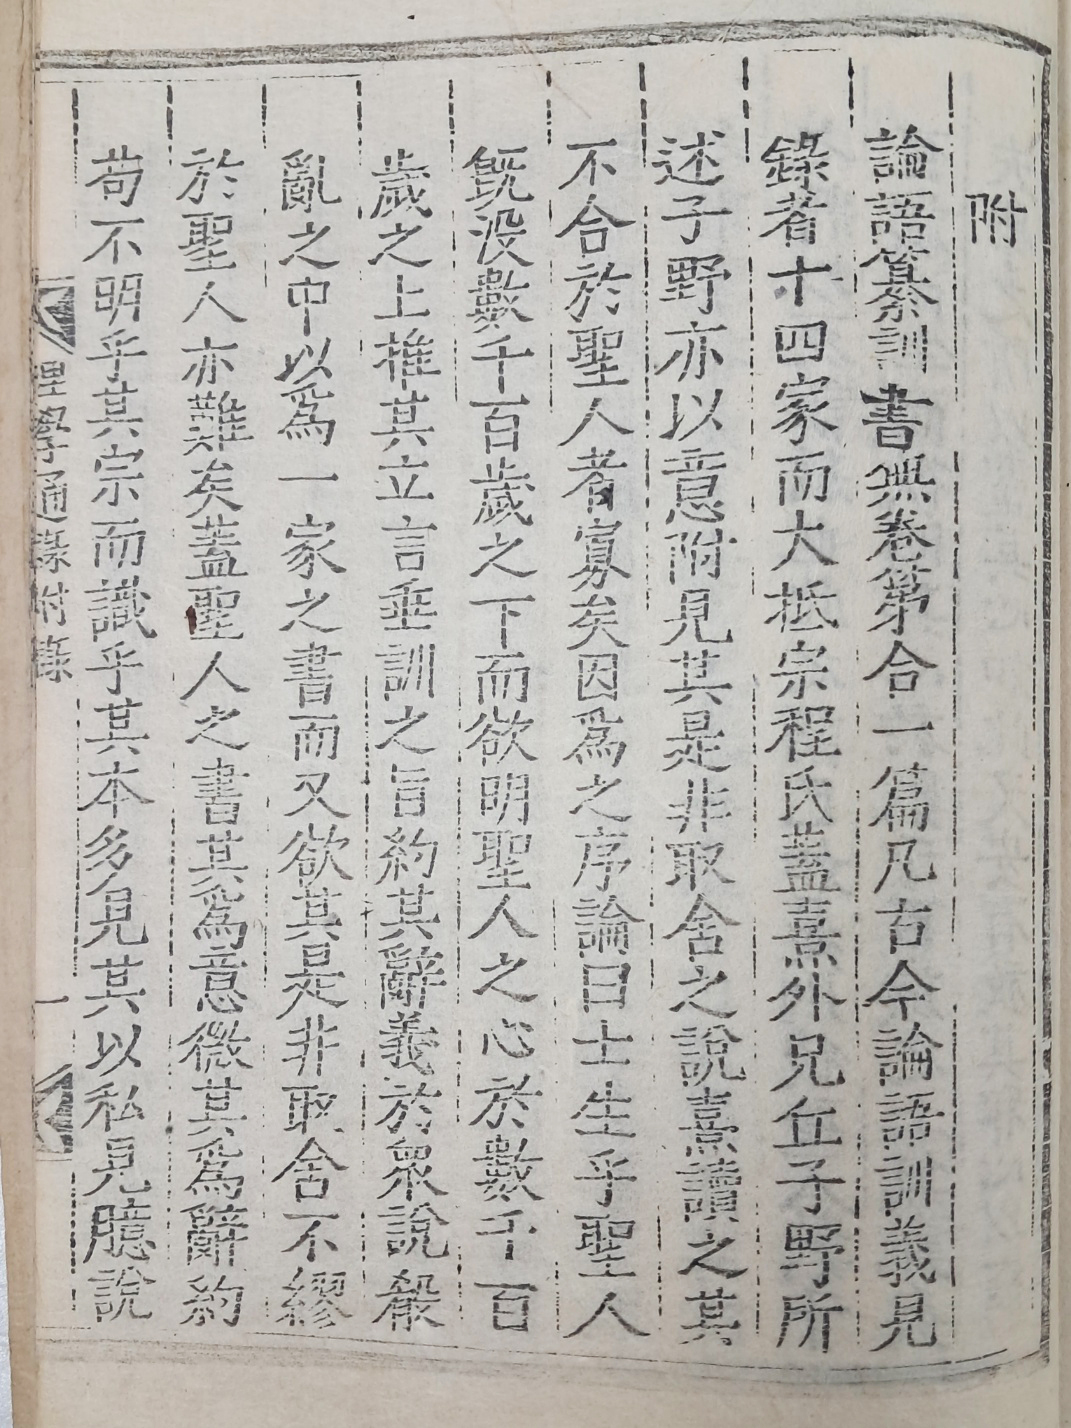 附
論語纂訓書無卷第合一篇凡古今論語訓義見
錄者十四家而大抵宗程氏蓋熹外兄丘子野所
述子野亦以意附見其是非取舍之說熹讀之其
不合於聖人者寡矣因爲之序論曰士生乎聖人
既没數千百歲之下而欲明聖人之心於數千百
歲之上推其立言垂訓之旨約其辭義於衆說殽
亂之中以爲一家之書而又欲其是非取舍不繆
於聖人亦難矣蓋聖人之書其爲意微其爲辭約
苟不明乎其宗而識乎其本多見其以私見臆說
理學通錄附錄 一